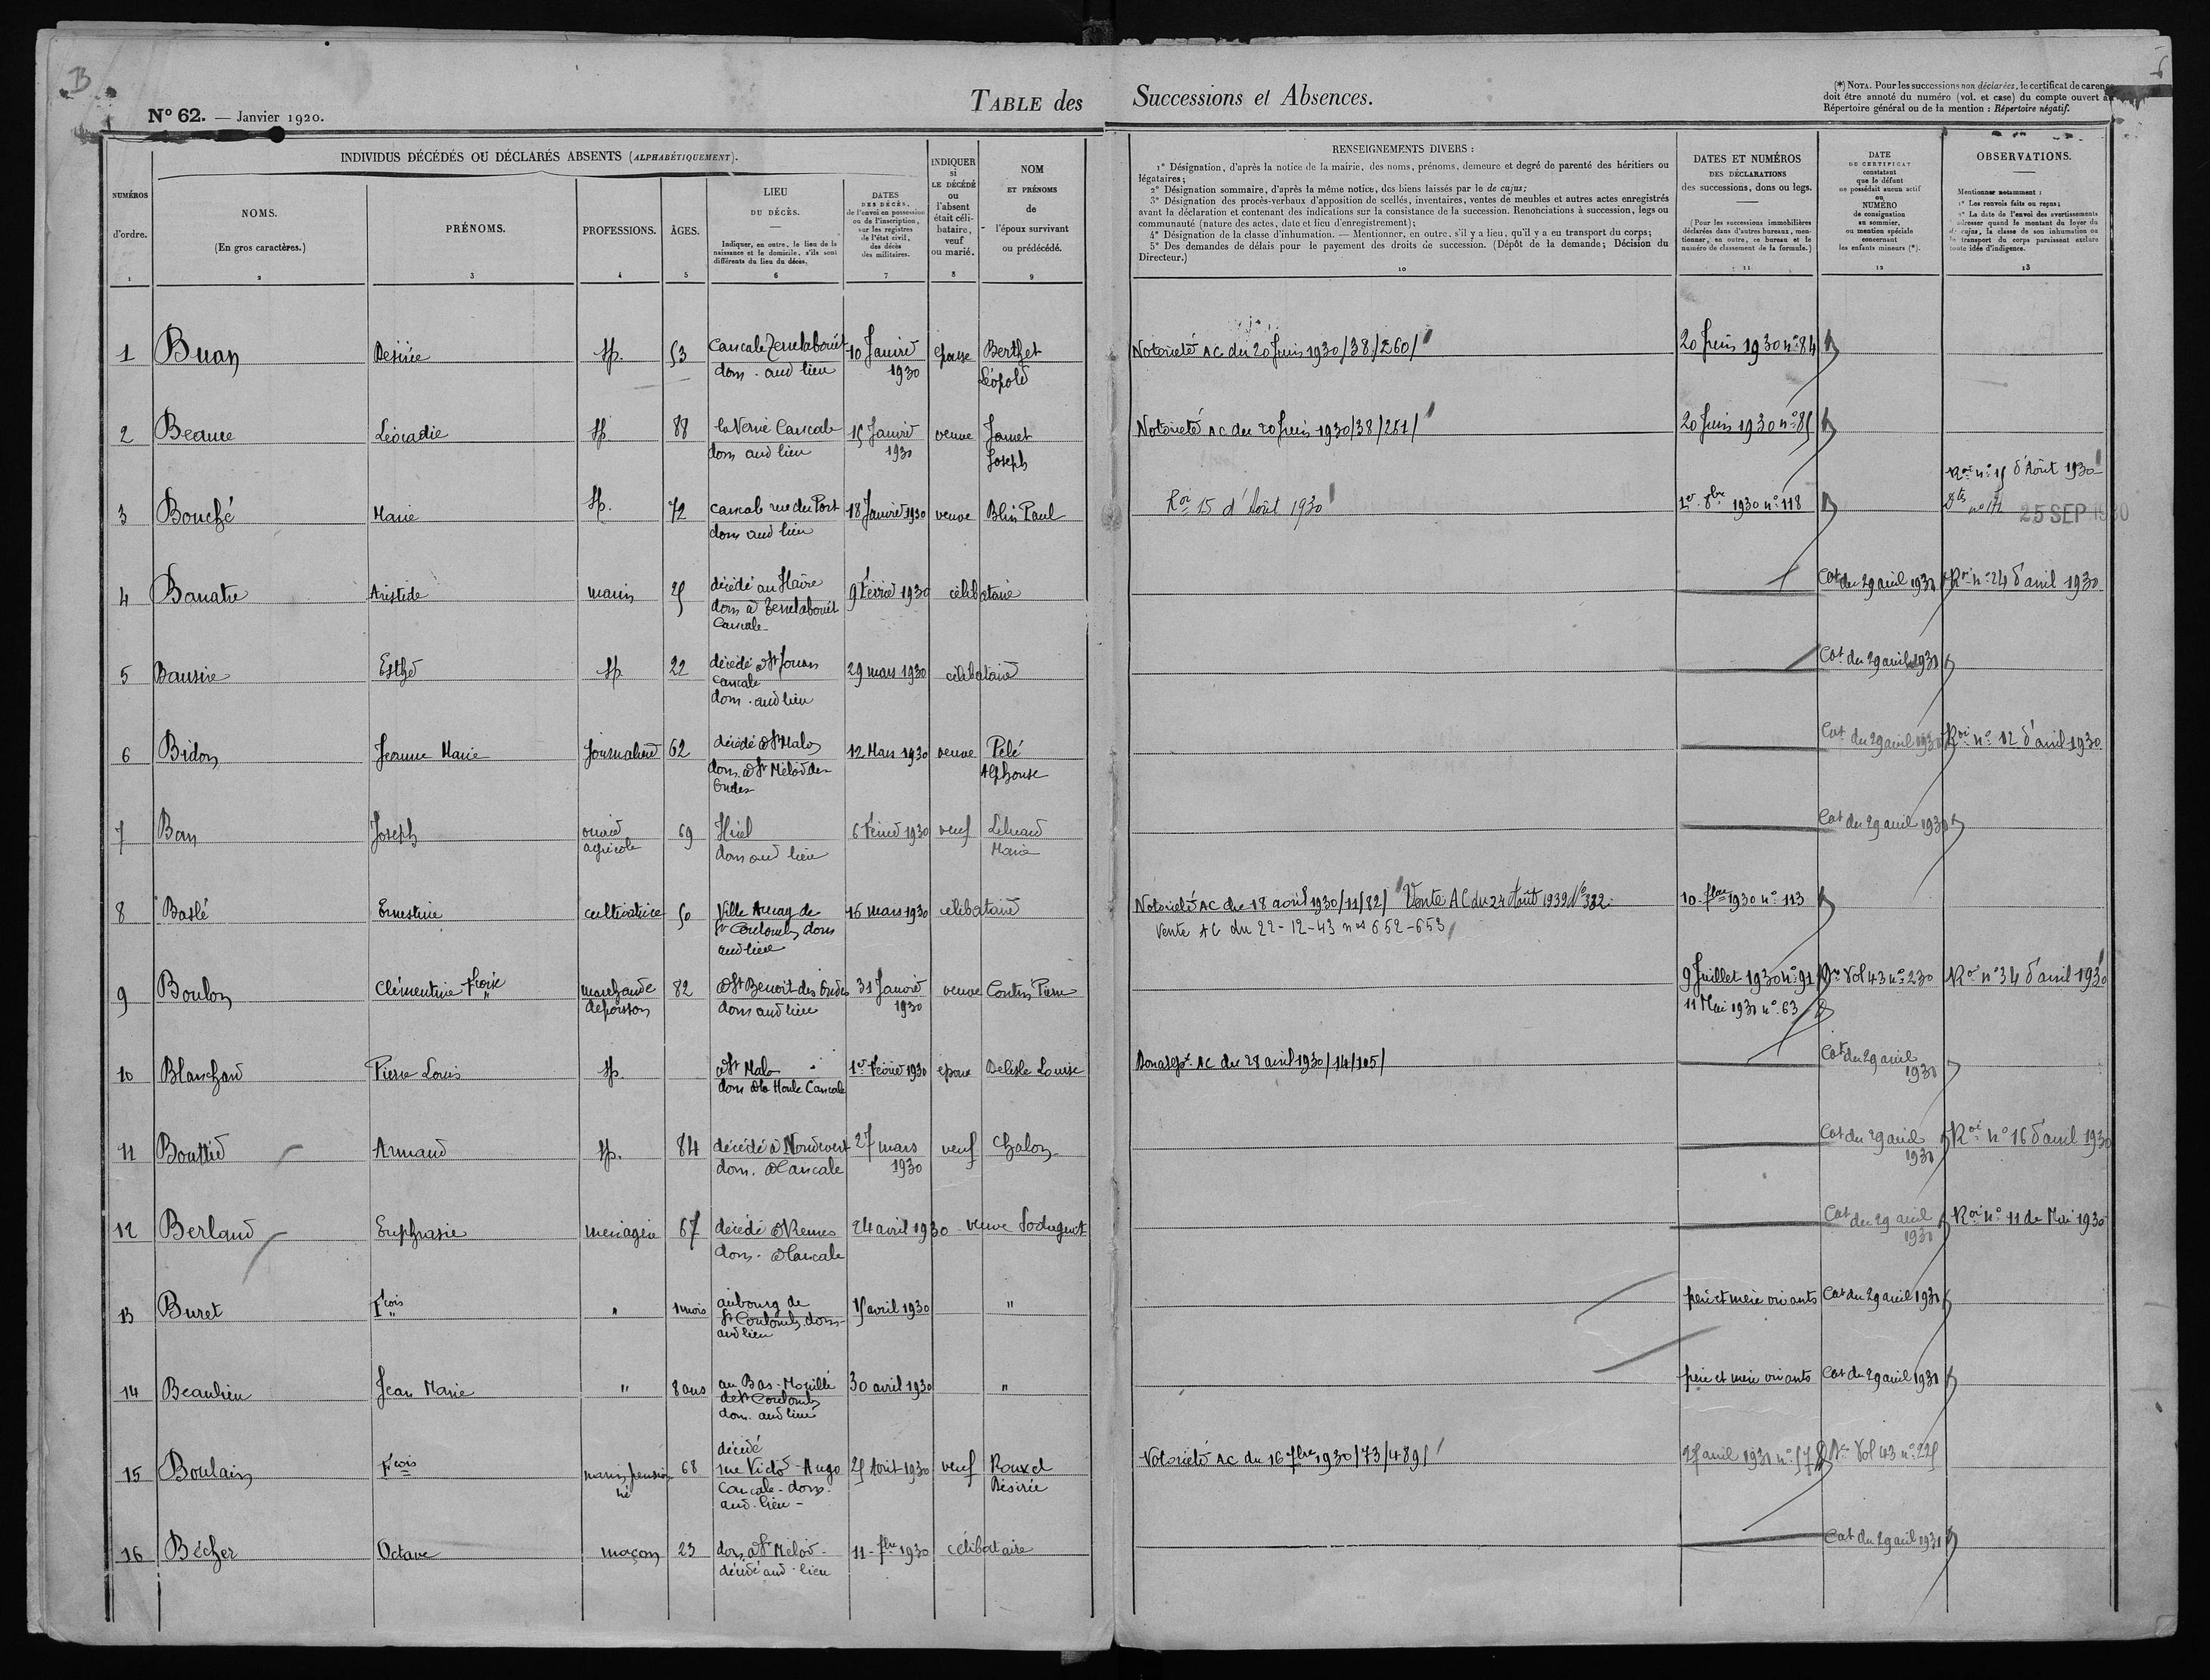 B
N° 62. — Janvier 1920.
TABLE des Successions et Absences.
(*) NOTA. Pour les successions non déclarées, le certificat de carence
doit être annoté du numéro (vol. et case) du compte ouvert au
Répertoire général ou de la mention : Répertoire négatif.
INDIVIDUS DÉCÉDÉS OU DÉCLARÉS ABSENTS (ALPHABÉTIQUEMENT).
NUMÉROS
d'ordre.
1
NOMS.
(En gros caractères.)
2
PRÉNOMS.
3
PROFESSIONS.
4
ÂGES.
5
LIEU
DU DÉCÈS.
Indiquer, en outre, le lieu de la
naissance et le domicile, s'ils sont
différents du lieu du décès.
6
DATES
DES DÉCÈS,
de l'envoi en possession
ou de l'inscription,
sur les registres
de l'état civil,
des décès
des militaires.
7
INDIQUER
si
LE DÉCÉDÉ
ou
l'absent
était céli-
bataire,
veuf
ou marié.
8
NOM
ET PRÉNOMS
de
l'époux survivant
ou prédécédé.
9
RENSEIGNEMENTS DIVERS :
1° Désignation, d'après la notice de la mairie, des noms, prénoms, demeure et degré de parenté des héritiers ou
légataires;
2° Désignation sommaire, d'après la même notice, des biens laissés par le de cujus;
3° Désignation des procès-verbaux d'apposition de scellés, inventaires, ventes de meubles et autres actes enregistrés
avant la déclaration et contenant des indications sur la consistance de la succession. Renonciations à succession, legs ou
communauté (nature des actes, date et lieu d'enregistrement);
4° Désignation de la classe d'inhumation. — Mentionner, en outre, s'il y a lieu, qu'il y a eu transport du corps;
5° Des demandes de délais pour le payement des droits de succession. (Dépôt de la demande; Décision du
Directeur.)
10
DATES ET NUMÉROS
DES DÉCLARATIONS
des successions, dons ou legs.
(Pour les successions immobilières
déclarées dans d'autres bureaux, men-
tionner, en outre, ce bureau et le
numéro de classement de la formule.)
11
DATE
DU CERTIFICAT
constatant
que le défunt
ne possédait aucun actif
ou
NUMÉRO
de consignation
au sommier,
ou mention spéciale
concernant
les enfants mineurs (*).
12
OBSERVATIONS.
Mentionner notamment :
1° Les renvois faits ou reçus;
2° La date de l'envoi des avertissements
à adresser quand le montant du loyer du
de cujus, la classe de son inhumation ou
le transport du corps paraissent exclure
toute idée d'indigence.
13
1 Buan Désirée sp. 53 Cancale Terrelabouët 10 Janvier épouse Berthet Notoriété AC du 20 Juin 1930/38/260/ 20 Juin 1930 n° 84
dom. aud lieu 1930 Léopold
2 Beauce Léocadie sp 88 la Verrie Cancale 15 Janvier veuve Jamet Notoriété AC du 20 Juin 1930/38/261/ 20 Juin 1930 n° 85
dom aud lieu 1930 Joseph
Roi n° 15 d'Août 1930
3 Bouché Marie sp. 72 cancale rue du Port 18 Janvier 1930 veuve Blin Paul Roi 15 d'Août 1930 1er 8bre 1930 n° 118 25 SEP 1930
dom aud lieu
4 Banatre Aristide marin 25 décédé au Havre 9 Février 1930 célibataire Cat du 29 avril 1930 Roi n° 24 d'avril 1930
dom à Terrelabouët
Cancale
5 Bausire Esther sp. 22 décédé à St Jouan 29 mars 1930 célibataire Cat du 29 avril 1930
Cancale
dom. aud lieu
6 Bidon Jeanne Marie Journalière 62 décédé à St Malo 12 Mars 1930 veuve Pelé Cat du 29 avril 1930 Roi n° 12 d'avril 1930
dom. à St Méloir des Alphonse
Ondes
7 Ban Joseph ouvrier 69 Hirel 6 Février 1930 veuf Cat du 29 avril 1930
agricole dom aud lieu Marie
8 Baslé Ernestine cultivatrice 50 Ville de 16 mars 1930 célibataire Notoriété AC du 18 avril 1930/11/82/ Vente AC du 24 Août 1939 N° 382. 10 1930 n° 113
St Coulomb dom Vente AC du 22-12-43 nos 652-653
aud lieu
9 Boulon Clémentine Froise marchande 82 à St Benoit des Ondes 31 Janvier veuve Contin Pierre 9 Juillet 1930 n° 91 Vol 43 n° 230 Roi n° 34 d'avril 1930
de poisson dom aud lieu 1930 11 Mai 1931 n° 63
10 Blanchard Pierre Louis sp. à St Malo 1er Février 1930 époux Delisle Louise AC du 28 avril 1930/14/105/ Cat du 29 avril
dom à la Houle Cancale 1930
11 Bouttier Armand sp. 84 décédé à 27 mars veuf Chalon Cat du 29 avril Roi n° 16 d'avril 1930
dom. à Cancale 1930 1930
12 Berland Euphrasie ménagère 67 décédé à Rennes 24 avril 1930 veuve Cat du 29 avril Roi n° 11 de Mai 1930
dom. à Cancale 1930
13 Buret Fcois " 1 mois au bourg de 15 avril 1930 " père et mère vivants Cat du 29 avril 1930
St Coulomb dom
aud lieu
14 Beaulieu Jean Marie " 8 ans au Bas-Mouillé 30 avril 1930 " père et mère vivants Cat du 29 avril 1930
de St Coulomb
dom. aud lieu
décédé
15 Boulain Fcois marin pension 68 rue Victor Hugo 25 Août 1930 veuf Rouxel Notoriété AC du 16 1930/73/489/ 25 avril 1931 n° 57 Vol 43 n° 225
né Cancale - dom. Désirée
aud. lieu -
16 Bécher Octave maçon 23 dom à St Méloir - 11 1930 célibataire Cat du 29 avril 1931
décédé aud lieu